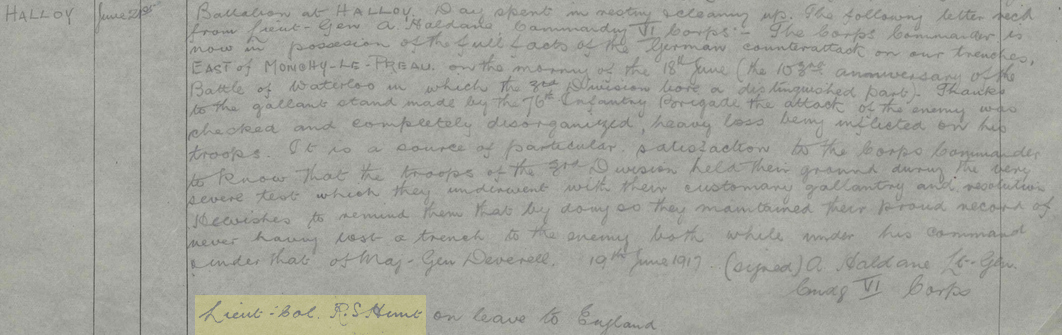 HALLOY June 21st Battalion at HALLOY. Day spent in resting & cleaning up. The following letter recd
from Lieut-Gen A. Haldane Commanding VI Corps:- The Corps Commander is
now in possesion of the full facts of the German counterattack on our trenches,
EAST of MONCHY-LE-PREAU. on the morning of the 18th June (the 103rd anniversary of the
Battle of Waterloo in which the 3rd Division bore a distinguished part). Thanks
to the gallant stand made by the 76th Infantry Brigade the attack of the enemy was
checked and completely disorganized, heavy loss being inflicted on his
troops. It is a source of particular satisfaction to the Corps Commander
to know that the troops of the 3rd Division held their ground during the very
severe test which they underwent with their customary gallantry and resolution
He wishes to remind them that by doing so they maintained their proud record of
never having lost a trench to the enemy both while under his command
& under that of Maj-Gen Deverell. 19th June 1917. (signed) A Haldane Lt-Gen.
Cmdg VI Corps
Lieut-Col. R.S. Hunt on leave to England